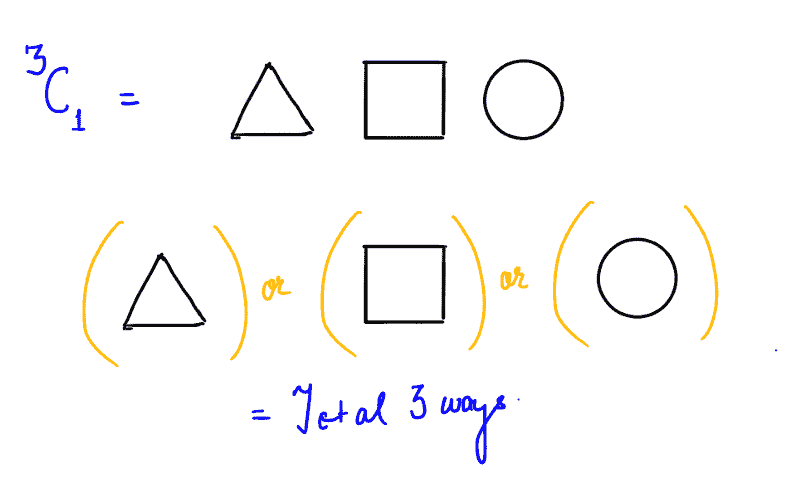 ³C₁ =
( ) or ( ) or ( )
= Total 3 ways.